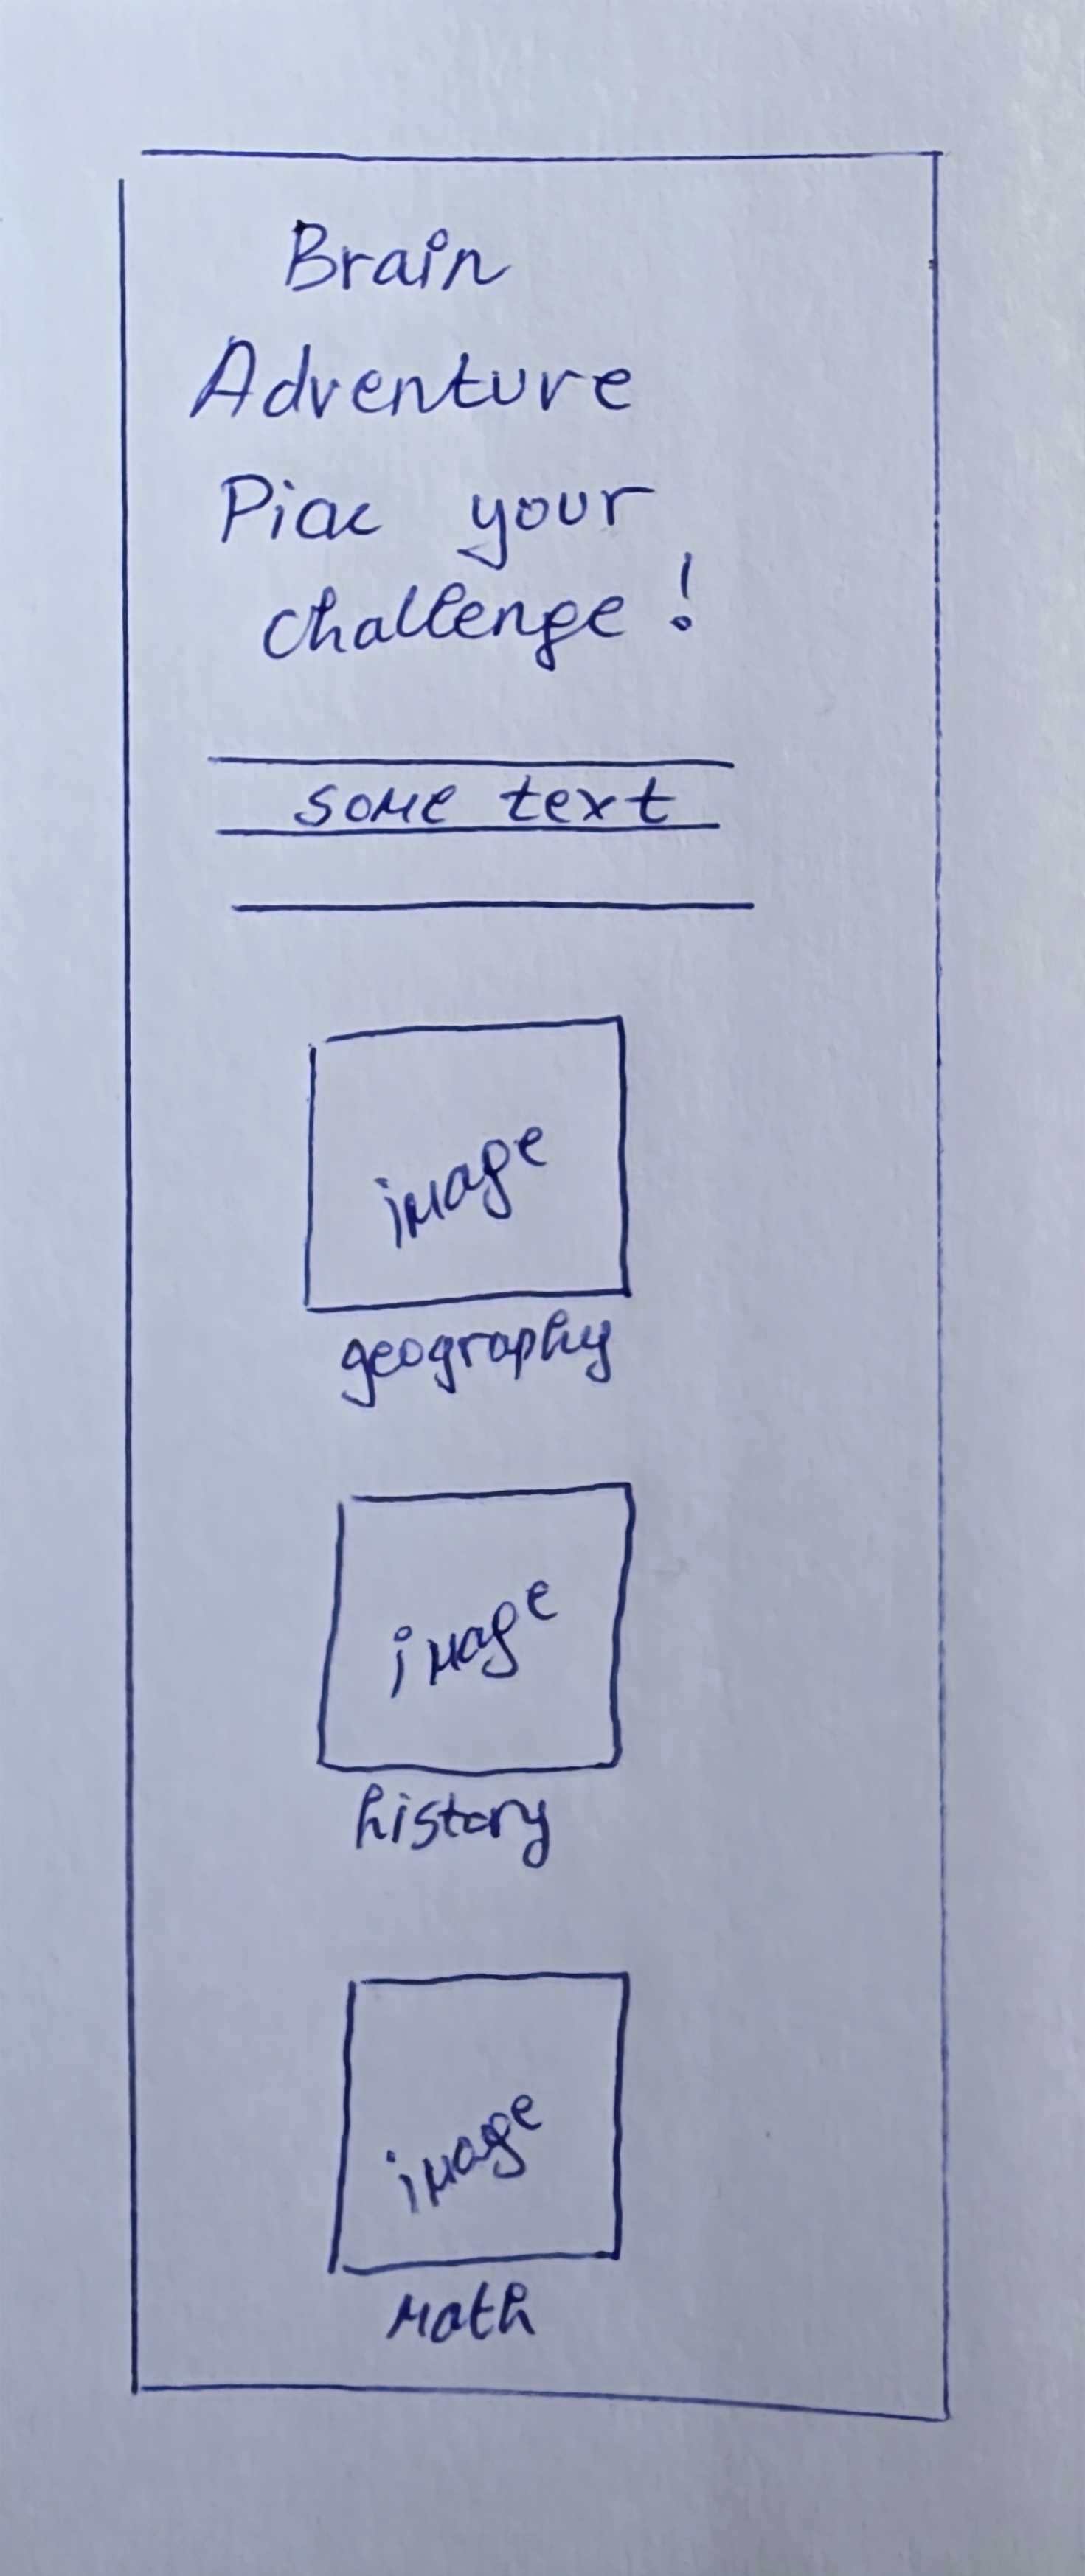 Brain
Adventure
Pick your
challenge!
some text
image
geography
image
history
image
math